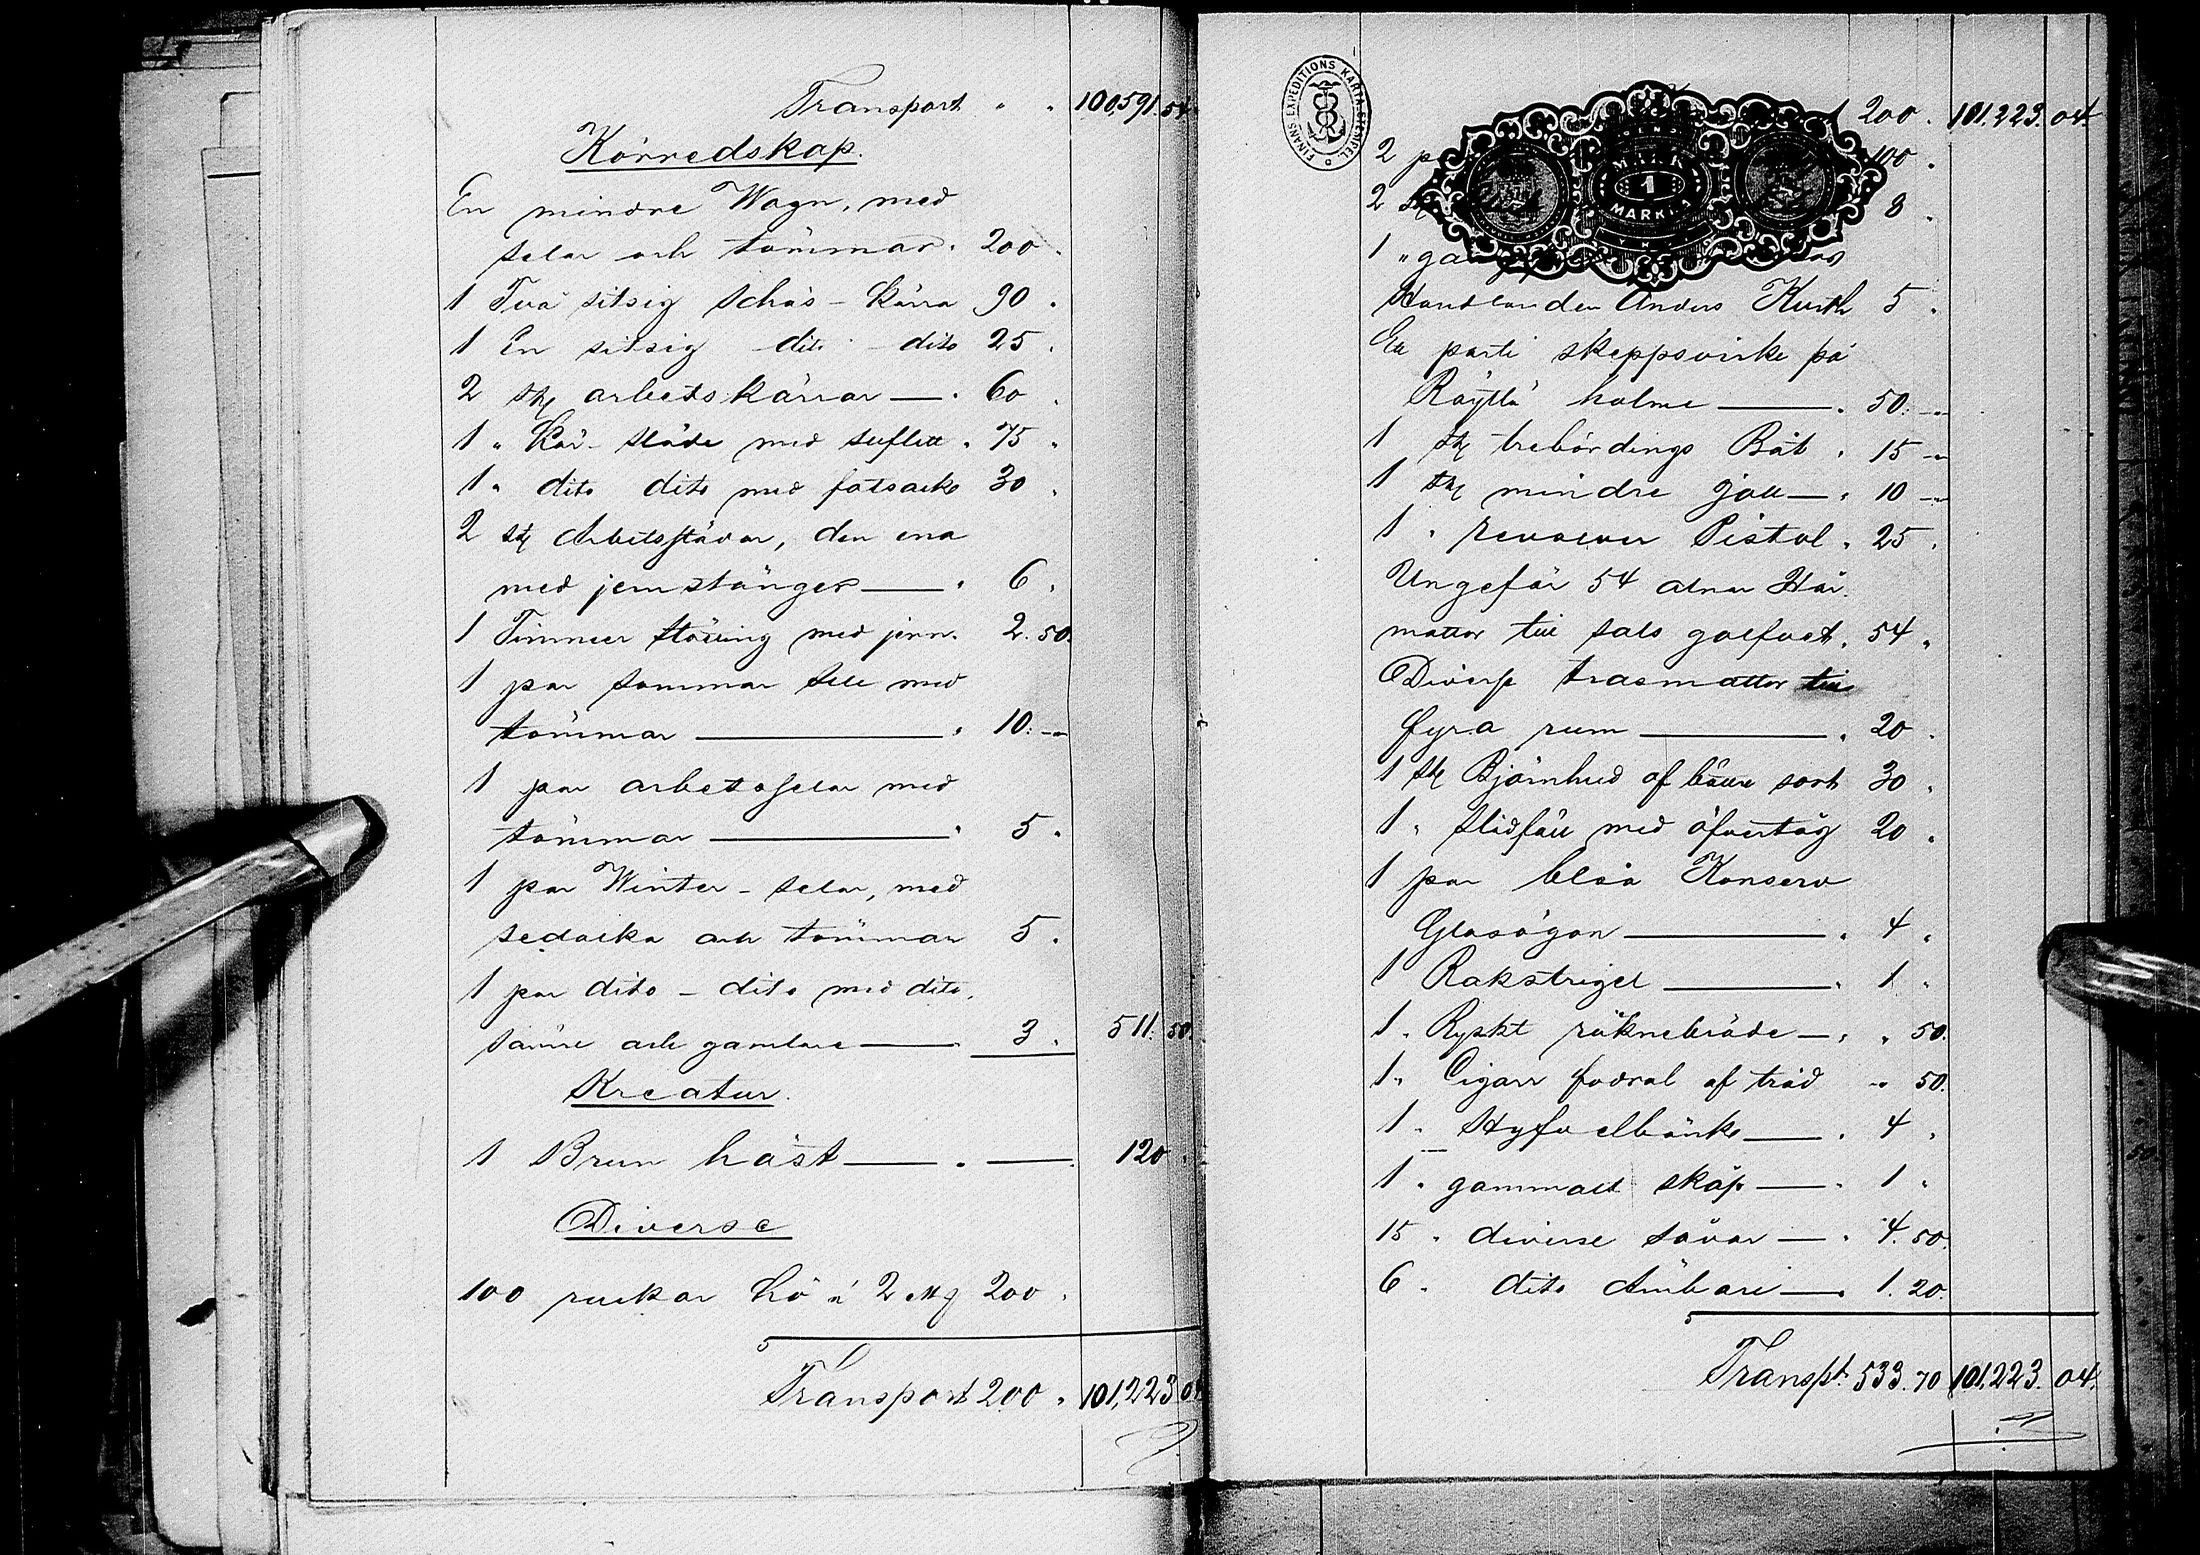 Transport " " 100,591. 54.
Körredskap.
En mindre Wagn, med
selar och tömmar. 200 .
1 Två sitsig Schäs-Kärra 90 .
1 En sitsig dito dito 25 .
2 stk arbetskärror — . 60 .
1 " Kär-släde med suflett . 75 .
1 " dito dito med fotsack 30 .
2 stk Arbetsslädar, den ena
med jernstänger — . 6 .
1 Timmer ställning med jern. 2. 50.
1 par sommar sele med
tömmar — . 10. —
1 par arbetsselar med
tömmar — " 5 .
1 par Winter-selar, med
sedolka och tömmar 5 .
1 par dito - dito med dito,
sämre och gamlare — 3 . 511. 50.
Kreatur.
1 Brun häst — . — 120 .
Diverse
100 ruckor hö à 2 Mg 200 .
Transport 200 . 101,223 04
FINANS EXPEDITIONS KARTA STEMPEL
200 . 101,223. 04
2 p 100 .
MARK
1
MARKKA
2 stk 8 .
1 " ga
Handlanden Anders Kurth 5 .
Ett parti skeppsvirke på
Röyttä holme — . 50. —
1 stk trebördings Båt . 15 —
1 stk mindre Joll — . 10 —
1 " revolver Pistol . 25 .
Ungefär 54 alnar Hår
mattor till sals golfvet . 54 "
Diverse trasmattor till
fyra rum — . 20 .
1 stk Björnhud af bättre sort 30 .
1 " Slädfäll med öfvertåg 20 .
1 par blåa Konserv
Glasögon — . 4 .
1 Rakstrigel — . 1 .
1 " Ryskt räknebräde — . " 50.
1 " Cigarr fodral af träd — 50.
1 " Hyfvelbänk — . 4 .
1 " gammalt skåp — . 1 .
15 " diverse såvar — . 4. 50.
6 " dito Ämbare — . 1. 20.
Transpt 533. 70 101,223. 04.